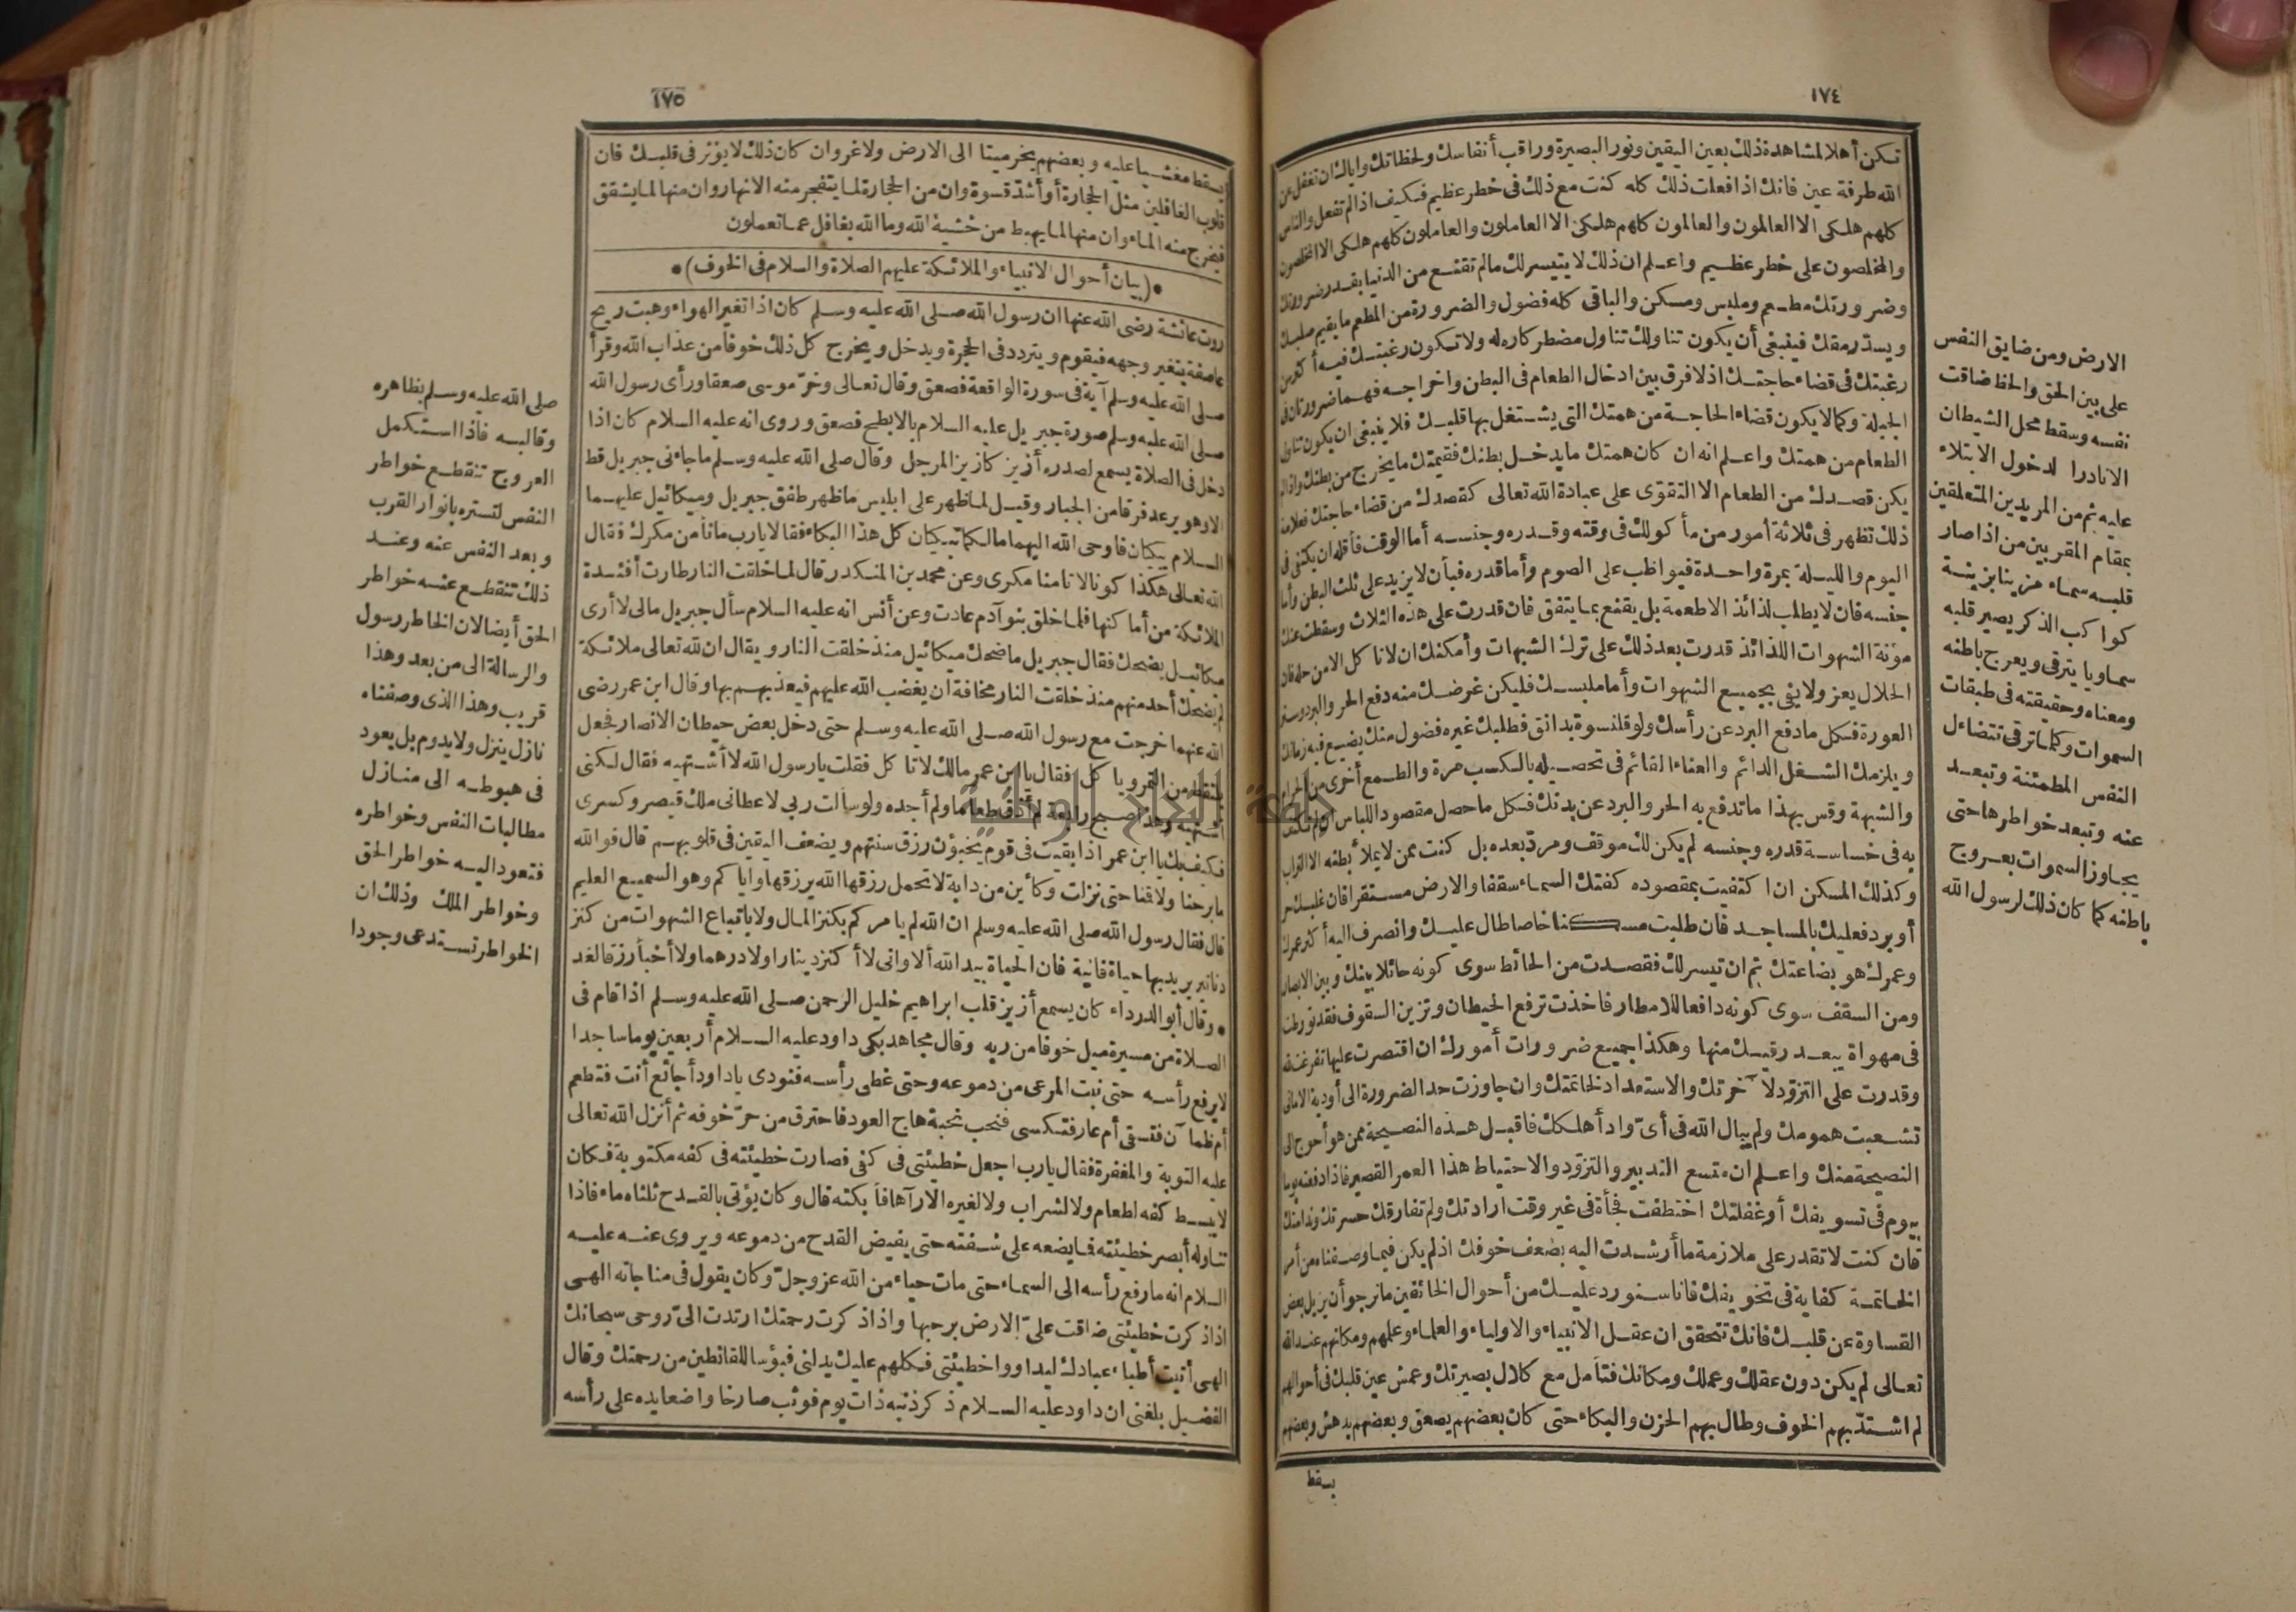 ١٧٤
تكن أهلا لمشاهدة ذلك بعين اليقين ونور البصيرة وراقب أنفاسك ولحظاتك واياك ان تغفل عن
الله طرفة عين فانك اذا فعلت ذلك كله كنت مع ذلك فى خطر عظيم فكيف اذا لم تفعل والناس
كلهم هلكى الا العالمون والعالمون كلهم هلكى الا العاملون والعاملون كلهم هلكى الا المخلصون
والمخلصون على خطر عظيم واعلم ان ذلك لا يتيسر لك مالم تقنع من الدنيا بقدر ضرورتك
وضرورتك مطعم وملبس ومسكن والباقى كله فضول والضرورة من المطعم ما يقيم صلبك
ويسدّ رمقك فينبغى أن يكون تناولك تناول مضطر كاره له ولا تكون رغبتك فيه أكثر من
رغبتك فى قضاء حاجتك اذ لا فرق بين ادخال الطعام فى البطن واخراجه فهما ضرورتان فى
الجبلة وكما لا يكون قضاء الحاجة من همتك التى يشتغل بها قلبك فلا ينبغى ان يكون تناول
الطعام من همتك واعلم انه ان كان همتك ما يدخل بطنك فقيمتك ما يخرج من بطنك واذا لم
يكن قصدك من الطعام الا التقوّى على عبادة الله تعالى كقصدك من قضاء حاجتك فعلامة
ذلك تظهر فى ثلاثة أمور من مأكولك فى وقته وقدره وجنسه أما الوقت فأقله ان يكتفى فى
اليوم والليلة بمرة واحدة فيواظب على الصوم وأما قدره فبأن لا يزيد على ثلث البطن وأما
جنسه فان لا يطلب لذائذ الاطعمة بل يقنع بما يتفق فان قدرت على هذه الثلاث وسقطت عنك
مؤنة الشهوات اللذائذ قدرت بعد ذلك على ترك الشبهات وأمكنك ان لا تأكل الا من حله فان
الحلال يعز ولا يفى بجميع الشهوات وأما ملبسك فليكن غرضك منه دفع الحر والبرد وستر
العورة فكل ما دفع البرد عن رأسك ولو قلنسوة بدانق فطلبك غيره فضول منك يضيع فيه زمانك
ويلزمك الشغل الدائم والعناء القائم فى تحصيله بالكسب مرة والطمع أخرى من الحرام
والشبهة وقس بهذا ما تدفع به الحر والبرد عن بدنك فكل ما حصل مقصود اللباس ان لم تكتف
به فى خساسة قدره وجنسه لم يكن لك موقف ومرد بعده بل كنت ممن لا يملأ بطنه الا التراب
وكذلك المسكن ان اكتفيت بمقصوده كفتك السماء سقفا والارض مستقرا فان غلبك حر
أو برد فعليك بالمساجد فان طلبت مسكنا خاصا طال عليك وانصرف اليه أكثر عمرك
وعمرك هو بضاعتك ثم ان تيسر لك فقصدت من الحائط سوى كونه حائلا بينك وبين الابصار
ومن السقف سوى كونه دافعا للامطار فاخذت ترفع الحيطان وتزين السقوف فقد تورطت
فى مهواة يبعد رقيك منها وهكذا جميع ضرورات أمورك ان اقتصرت عليها تفرغت لله
وقدرت على التزوّد لآخرتك والاستعداد لخاتمتك وان جاوزت حد الضرورة الى أودية الامانى
تشعبت همومك ولم يبال الله فى أىّ واد أهلكك فاقبل هذه النصيحة ممن هو أحوج الى
النصيحة منك واعلم ان متسع التدبير والتزوّد والاحتياط هذا العمر القصير فاذا دفعته يوما
بيوم فى تسويفك أو غفلتك اختطفت فجأة فى غير وقت ارادتك ولم تفارقك حسرتك وندامتك
فان كنت لا تقدر على ملازمة ما أرشدت اليه بضعف خوفك اذ لم يكن فيما وصفناه من أمر
الخاتمة كفاية فى تخويفك فانا سنورد عليك من أحوال الخائفين ما نرجو أن يزيل بعض
القساوة عن قلبك فانك تتحقق ان عقل الانبياء والاولياء والعلماء وعملهم ومكانهم عند الله
تعالى لم يكن دون عقلك وعملك ومكانك فتأمل مع كلال بصيرتك وعمش عين قلبك فى أحوالهم
لم اشتدّ بهم الخوف وطال بهم الحزن والبكاء حتى كان بعضهم يصعق وبعضهم يدهش وبعضهم
يسقط
الارض ومن ضايق النفس
على بين الحق والحظ ضاقت
نفسه وسقط محل الشيطان
الا نادرا لدخول الابتلاء
عليه ثم من المريدين المتعلقين
بمقام المقربين من اذا صار
قلبه سماء مزينا بزينة
كواكب الذكر يصير قلبه
سماويا يترقى ويعرج باطنه
ومعناه وحقيقته فى طبقات
السموات وكلما ترقى تتضاءل
النفس المطمئنة وتبعد
عنه وتبعد خواطرها حتى
يجاوز السموات بعروج
باطنه كما كان ذلك لرسول الله
١٧٥
يسقط مغشيا عليه وبعضهم يخر ميتا الى الارض ولا غرو ان كان ذلك لا يؤثر فى قلبك فان
قلوب الغافلين مثل الحجارة أو أشدّ قسوة وان من الحجارة لما يتفجر منه الانهار وان منها لما يشقق
فيخرج منه الماء وان منها لما يهبط من خشية الله وما الله بغافل عما تعملون
•(بيان أحوال الانبياء والملائكة عليهم الصلاة والسلام فى الخوف)•
روت عائشة رضى الله عنها ان رسول الله صلى الله عليه وسلم كان اذا تغير الهواء وهبت ريح
عاصفة يتغير وجهه فيقوم ويتردد فى الحجرة ويدخل ويخرج كل ذلك خوفا من عذاب الله وقرأ
صلى الله عليه وسلم آية فى سورة الواقعة فصعق وقال تعالى وخرّ موسى صعقا ورأى رسول الله
صلى الله عليه وسلم صورة جبريل عليه السلام بالابطح فصعق وروى انه عليه السلام كان اذا
دخل فى الصلاة يسمع لصدره أزيز كازيز المرجل وقال صلى الله عليه وسلم ما جاءنى جبريل قط
الا وهو يرعد فرقا من الجبار وقيل لما ظهر على ابليس ما ظهر طفق جبريل وميكائيل عليهما
السلام يبكيان فاوحى الله اليهما ما لكما تبكيان كل هذا البكاء فقالا يا رب ما نأمن مكرك فقال
الله تعالى هكذا كونا لا تأمنا مكرى وعن محمد بن المنكدر قال لما خلقت النار طارت أفئدة
الملائكة من أماكنها فلما خلق بنو آدم عادت وعن أنس انه عليه السلام سأل جبريل مالى لا أرى
ميكائيل يضحك فقال جبريل ما ضحك ميكائيل منذ خلقت النار ويقال ان لله تعالى ملائكة
لم يضحك أحد منهم منذ خلقت النار مخافة أن يغضب الله عليهم فيعذبهم بها وقال ابن عمر رضى
الله عنهما خرجت مع رسول الله صلى الله عليه وسلم حتى دخل بعض حيطان الانصار فجعل
يلتقط من التمر ويأكل فقال يا ابن عمر مالك لا تأكل فقلت يا رسول الله لا أشتهيه فقال لكنى
أشتهيه وهذا صبح رابعة لم أذق طعاما ولم أجده ولو سألت ربى لاعطانى ملك قيصر وكسرى
فكيف بك يا ابن عمر اذا بقيت فى قوم يخبؤن رزق سنتهم ويضعف اليقين فى قلوبهم قال فوالله
ما برحنا ولا قمنا حتى نزلت وكأين من دابة لا تحمل رزقها الله يرزقها واياكم وهو السميع العليم
قال فقال رسول الله صلى الله عليه وسلم ان الله لم يأمركم بكنز المال ولا باتباع الشهوات من كنز
دنانير يريد بها حياة فانية فان الحياة بيد الله ألا وانى لا أكنز دينارا ولا درهما ولا أخبأ رزقا لغد
• وقال أبو الدرداء كان يسمع أزيز قلب ابراهيم خليل الرحمن صلى الله عليه وسلم اذا قام فى
الصلاة من مسيرة ميل خوفا من ربه وقال مجاهد بكى داود عليه السلام أربعين يوما ساجدا
لا يرفع رأسه حتى نبت المرعى من دموعه وحتى غطى رأسه فنودى يا داود أجائع أنت فتطعم
أم ظمآن فتسقى أم عار فتكسى فنحب نحبة هاج العود فاحترق من حرّ خوفه ثم أنزل الله تعالى
عليه التوبة والمغفرة فقال يا رب اجعل خطيئتى فى كفى فصارت خطيئته فى كفه مكتوبة فكان
لا يبسط كفه لطعام ولا لشراب ولا لغيره الا رآها فأبكته قال وكان يؤتى بالقدح ثلثاه ماء فاذا
تناوله أبصر خطيئته فما يضعه على شفته حتى يفيض القدح من دموعه ويروى عنه عليه
السلام انه ما رفع رأسه الى السماء حتى مات حياء من الله عز وجلّ وكان يقول فى مناجاته الهى
اذا ذكرت خطيئتى ضاقت علىّ الارض برحبها واذا ذكرت رحمتك ارتدت الىّ روحى سبحانك
الهى أتيت أطباء عبادك ليداووا خطيئتى فكلهم عليك يدلنى فبؤسا للقانطين من رحمتك وقال
الفضيل بلغنى ان داود عليه السلام ذكر ذنبه ذات يوم فوثب صارخا واضعا يده على رأسه
صلى الله عليه وسلم بظاهره
وقالبه فاذا استكمل
العروج تنقطع خواطر
النفس لتستره بانوار القرب
وبعد النفس عنه وعند
ذلك تنقطع عنه خواطر
الحق أيضا لان الخاطر رسول
والرسالة الى من بعد وهذا
قريب وهذا الذى وصفناه
نازل ينزل ولا يدوم بل يعود
فى هبوطه الى منازل
مطالبات النفس وخواطره
فتعود اليه خواطر الحق
وخواطر الملك وذلك ان
الخواطر تستدعى وجودا